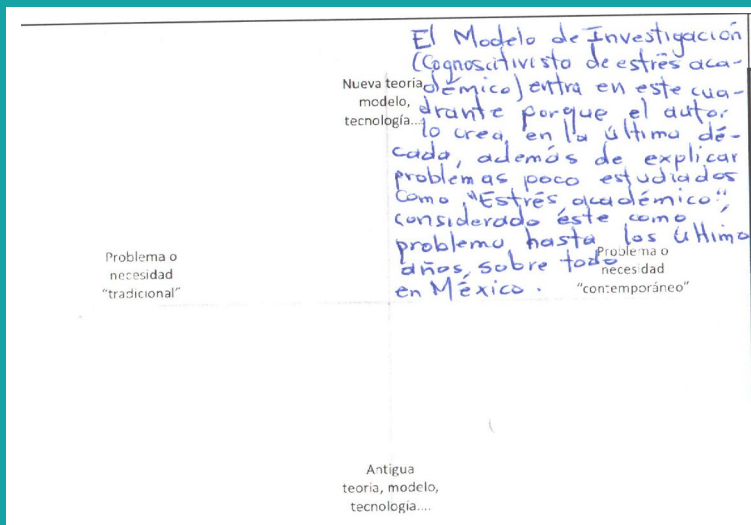 El Modelo de Investigación
(Cognoscitivista de estrés aca-
démico) entra en este cua-
drante porque el autor
lo crea en la última dé-
cada, además de explicar
problemas poco estudiados
como "Estrés académico",
considerado éste como
problema hasta los último
años, sobre todo
en México.
Nueva teoría,
modelo,
tecnología...
Problema o
necesidad
"tradicional"
Problema o
necesidad
"contemporáneo"
Antigua
teoria, modelo,
tecnología....